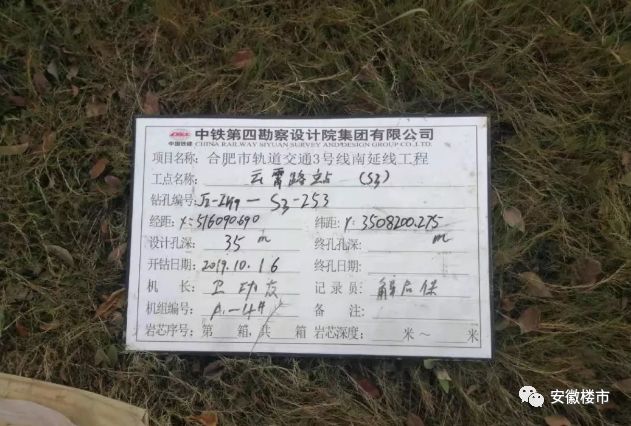 中国铁建
中铁第四勘察设计院集团有限公司
CHINA RAILWAY SIYUAN SURVEY AND DESIGN GROUP CO.,LTD.
项目名称: 合肥市轨道交通3号线南延线工程
工点名称: 云霄路站 (S3)
钻孔编号: -S3-253
经距: 516090.690 纬距: Y:3508200.275
设计孔深: 35 m 终孔孔深: m
开钻日期: 2019.10.16 终孔日期:
机 长: 记录员: 后保
机组编号: 备 注:
岩芯序号: 第 箱,共 箱 岩芯深度: 米~ 米
安徽楼市